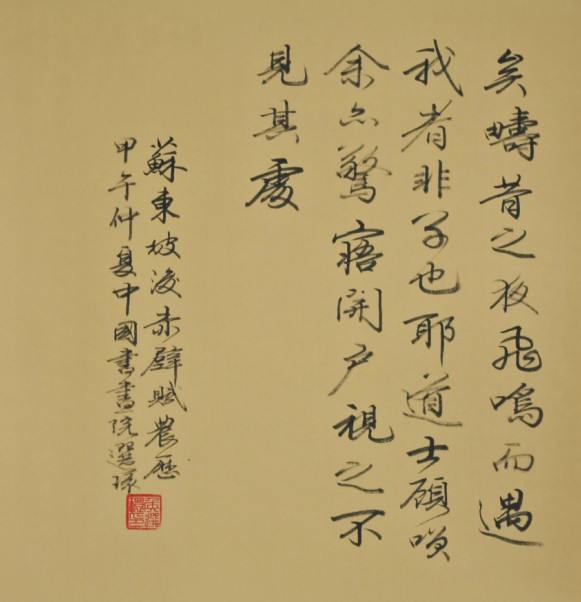 矣疇昔之夜飛鳴而過
我者非子也耶道士顧唄
余亦驚寤開戶視之不
見其處
蘇東坡後赤壁賦農歷
甲午仲夏中國書畫院選球